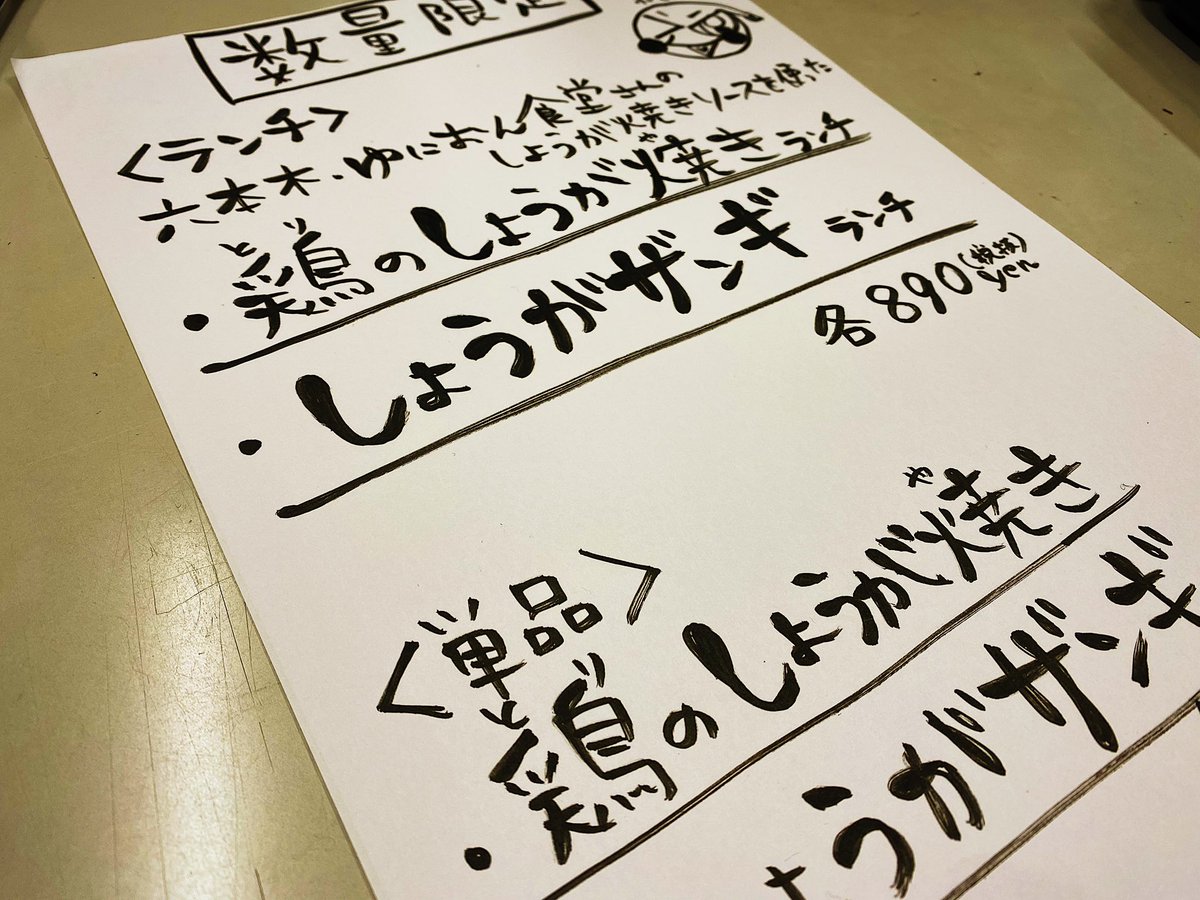 数量限定
<ランチ>
六本木・ゆにおん食堂さんの
しょうが焼きソースを使った
・鶏のしょうが焼きランチ
とり
や
・しょうがザンギ ランチ
各890yen(税抜)
<単品>
・鶏のしょうが焼き
とり
や
ょうがザンギ